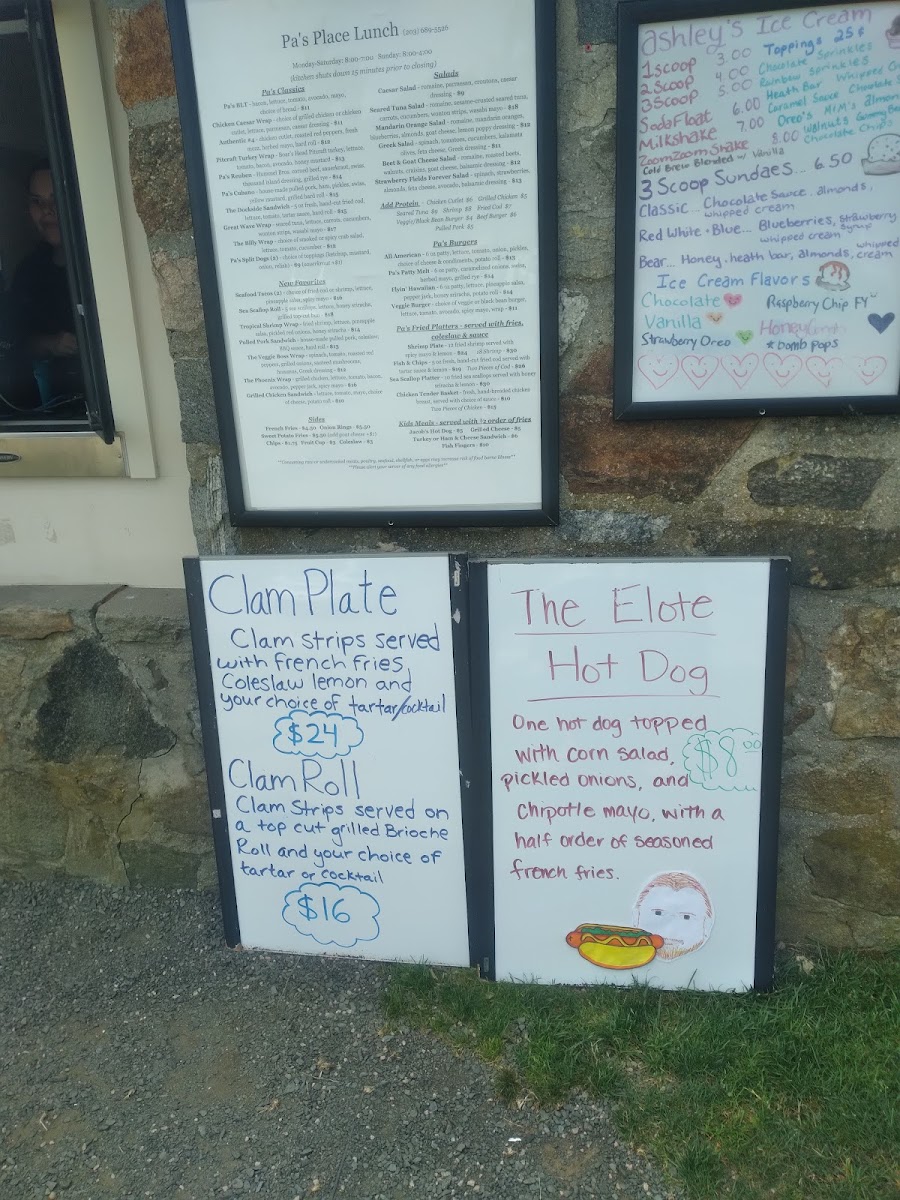 Pa's Place Lunch (203) 689-5526
Monday-Saturday: 8:00-7:00 Sunday: 8:00-4:00
(kitchen shuts down 15 minutes prior to closing)
Pa's Classics
Pa's BLT - bacon, lettuce, tomato, avocado, mayo,
choice of bread - $11
Chicken Caesar Wrap - choice of grilled chicken or chicken
cutlet, lettuce, parmesan, caesar dressing - $11
Authentic #4 - chicken cutlet, roasted red peppers, fresh
mozz, herbed mayo, hard roll - $12
Pitcraft Turkey Wrap - Boar's Head Pitcraft turkey, lettuce,
tomato, bacon, avocado, honey mustard - $13
Pa's Reuben
thousand island dressing, grilled rye - $14
Pa's Cubano - house-made pulled pork, ham, pickles, swiss,
yellow mustard, grilled hard roll - $15
The Dockside Sandwich - 5 oz fresh, hand-cut fried cod,
lettuce, tomato, tartar sauce, hard roll - $15
Great Wave Wrap - seared tuna, lettuce, carrots, cucumbers,
wonton strips, wasabi mayo - $17
The Billy Wrap - choice of smoked or spicy crab salad,
lettuce, tomato, cucumber - $12
Pa's Split Dogs (2) - choice of toppings (ketchup, mustard,
onion, relish)
New Favorites
Seafood Tacos (2) - choice of fried cod or shrimp, lettuce,
pineapple salsa, spicy mayo - $16
Sea Scallop Roll - 5 sea scallops, lettuce, honey sriracha,
grilled top cut bun - $18
Tropical Shrimp Wrap - fried shrimp, lettuce, pineapple
salsa, pickled red onions, honey sriracha - $14
Pulled Pork Sandwich - house-made pulled pork, coleslaw,
BBQ sauce, hard roll - $13
The Veggie Boss Wrap - spinach, tomato, roasted red
peppers, grilled onions, roasted mushrooms,
balsamic, Greek dressing - $12
The Phoenix Wrap - grilled chicken, lettuce, tomato, bacon,
avocado, pepper jack, spicy mayo - $16
Grilled Chicken Sandwich - lettuce, tomato, mayo, choice
of cheese, potato roll - $10
Sides
French Fries - $4.50 Onion Rings - $5.50
Sweet Potato Fries - $5.50 (add goat cheese +$1)
Chips - $1.75 Fruit Cup - $3 Coleslaw - $3
Salads
Caesar Salad - romaine, parmesan, croutons, caesar
dressing - $9
Seared Tuna Salad - romaine, sesame-crusted seared tuna,
carrots, cucumbers, wonton strips, wasabi mayo - $18
Mandarin Orange Salad - romaine, mandarin oranges,
blueberries, almonds, goat cheese, lemon poppy dressing - $12
Greek Salad - spinach, tomatoes, cucumbers, kalamata
olives, feta cheese, Greek dressing - $11
Beet & Goat Cheese Salad - romaine, roasted beets,
walnuts, craisins, goat cheese, balsamic dressing - $12
Strawberry Fields Forever Salad - spinach, strawberries,
almonds, feta cheese, avocado, balsamic dressing - $13
Add Protein - Chicken Cutlet $6 Grilled Chicken $5
Seared Tuna $9 Shrimp $8 Fried Cod $7
Veggie/Black Bean Burger $4 Beef Burger $6
Pulled Pork $5
Pa's Burgers
All American - 6 oz patty, lettuce, tomato, onion, pickles,
choice of cheese & condiments, potato roll - $13
Pa's Patty Melt - 6 oz patty, caramelized onions, swiss,
herbed mayo, grilled rye - $14
Flyin' Hawaiian - 6 oz patty, lettuce, pineapple salsa,
pepper jack, honey sriracha, potato roll - $14
Veggie Burger - choice of veggie or black bean burger,
lettuce, tomato, avocado, spicy mayo, wrap - $11
Pa's Fried Platters - served with fries,
coleslaw & sauce
Shrimp Plate - 12 fried shrimp served with
spicy mayo & lemon - $24 18 Shrimp - $30
Fish & Chips - 5 oz fresh, hand-cut fried cod served with
tartar sauce & lemon - $19 Two Pieces of Cod - $26
Sea Scallop Platter - 10 fried sea scallops served with honey
sriracha & lemon - $30
Chicken Tender Basket - fresh, hand-breaded chicken
breast, served with choice of sauce - $10
Two Pieces of Chicken - $15
Kids Meals - served with ½ order of fries
Jacob's Hot Dog - $5 Grilled Cheese - $5
Turkey or Ham & Cheese Sandwich - $6
Fish Fingers - $10
**Consuming raw or undercooked meats, poultry, seafood, shellfish, or eggs may increase risk of food borne illness**
**Please alert your server of any food allergies**
ashley's Ice Cream
1 scoop 3.00
2 Scoop 4.00
3 Scoop 5.00
Soda Float 6.00
Milkshake 7.00
ZoomZoom Shake 8.00
Cold Brew Blended w/ Vanilla
Toppings 25¢
Chocolate Sprinkles
Rainbow Sprinkles
Heath Bar Whipped
Caramel Sauce Chocolate
Oreo's M+M's almond
Walnuts
Chocolate Chips
3 Scoop Sundaes... 6.50
Classic... Chocolate Sauce, almonds,
whipped cream
Red White + Blue... Blueberries, Strawberry
Syrup
whipped cream
Bear... Honey, heath bar, almonds, whipped
cream
Ice Cream Flavors
Chocolate
Vanilla
Strawberry Oreo
Raspberry Chip FY
Honey
* Bomb Pops
Clam Plate
Clam Strips served
with French fries,
Coleslaw lemon and
your choice of tartar/cocktail
$24
Clam Roll
Clam Strips served on
a top cut grilled Brioche
Roll and your choice of
tartar or cocktail
$16
The Elote
Hot Dog
One hot dog topped
with corn salad,
pickled onions, and
$8.00
Chipotle mayo, with a
half order of seasoned
french fries.